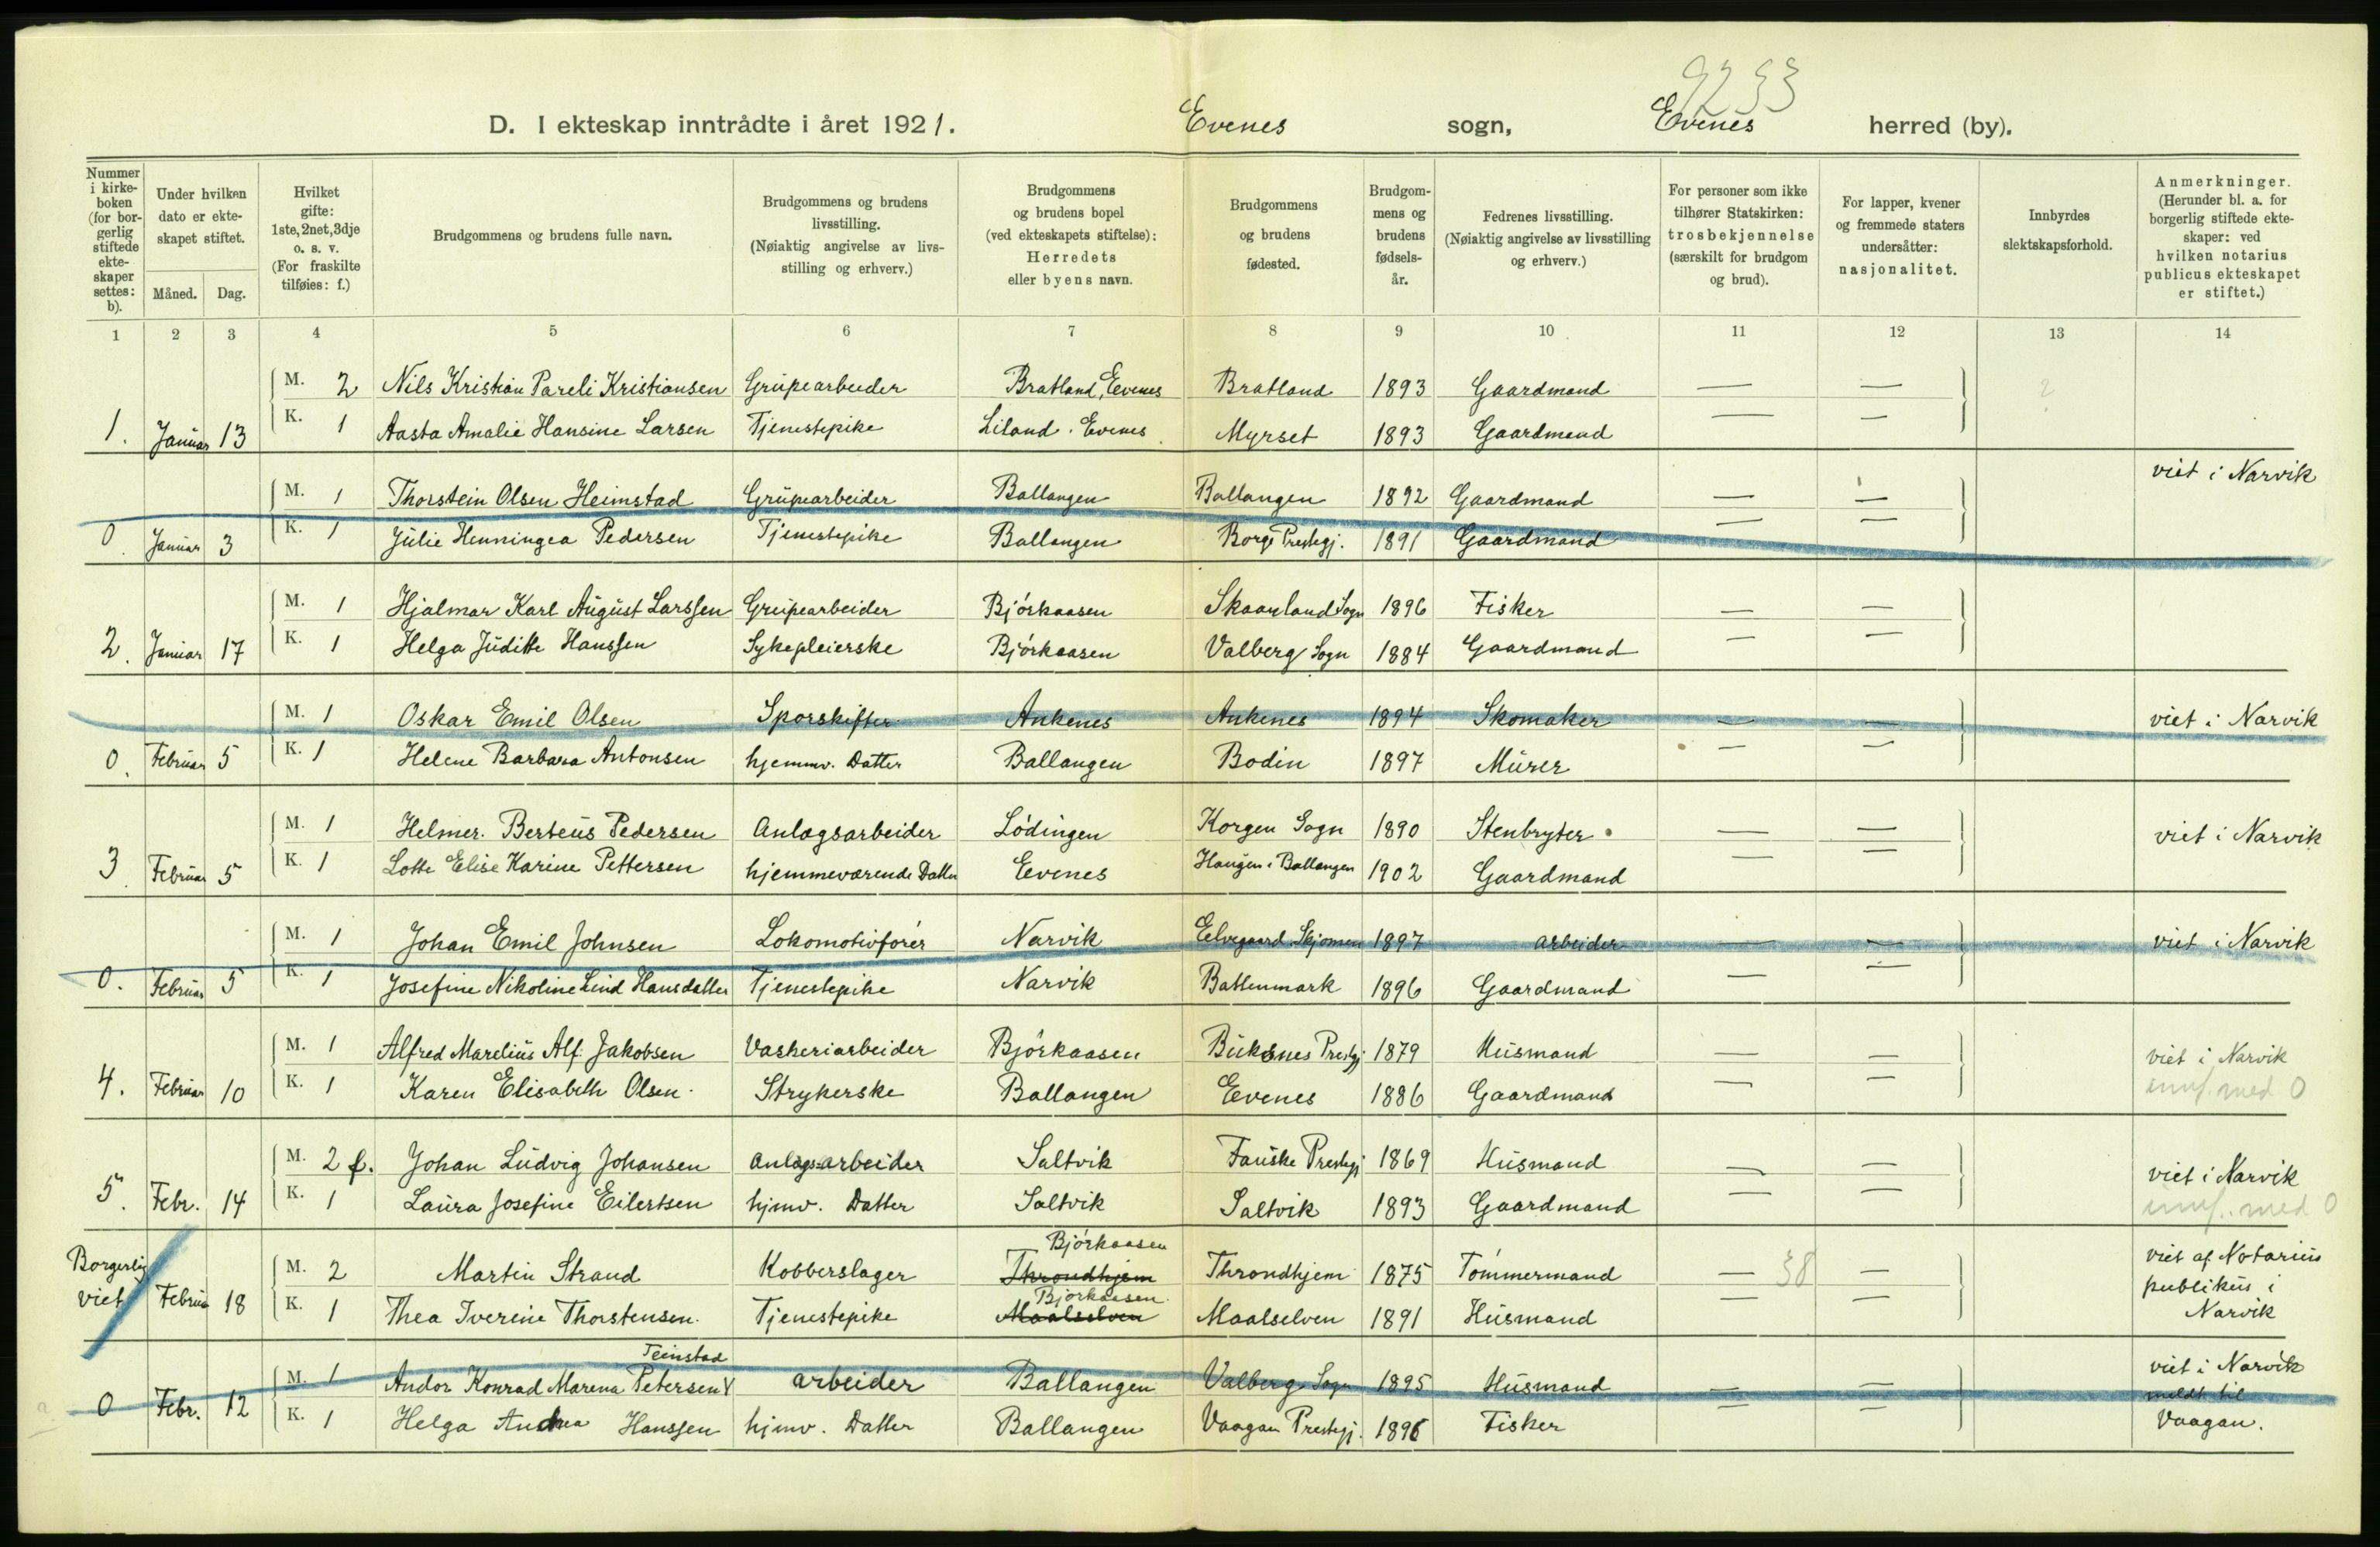 9233
D. I ekteskap inntrådte i året 1921. Evenes sogn, Evenes herred (by).
Nummer i kirkeboken (for borgerlig stiftede ekteskaper settes: b).
Under hvilken dato er ekteskapet stiftet.
Måned. Dag.
Hvilket gifte: 1ste, 2net, 3dje o. s. v. (For fraskilte tilføies: f.)
Brudgommens og brudens fulle navn.
Brudgommens og brudens livsstilling. (Nøiaktig angivelse av livsstilling og erhverv.)
Brudgommens og brudens bopel (ved ekteskapets stiftelse): Herredets eller byens navn.
Brudgommens og brudens fødested.
Brudgommens og brudens fødselsår.
Fedrenes livsstilling. (Nøiaktig angivelse av livsstilling og erhverv.)
For personer som ikke tilhører Statskirken: trosbekjennelse (særskilt for brudgom og brud).
For lapper, kvener og fremmede staters undersåtter: nasjonalitet.
Innbyrdes slektskapsforhold.
Anmerkninger. (Herunder bl. a. for borgerlig stiftede ekteskaper: ved hvilken notarius publicus ekteskapet er stiftet.)
1 2 3 4 5 6 7 8 9 10 11 12 13 14
M. 2 Nils Kristian Pareli Kristiansen Grupearbeider Bratland, Evenes Bratland 1893 Gaardmand — — 2
1. Januar 13 K. 1 Aasta Amalie Hansine Larsen Tjenestepike Liland. Evenes Myrset 1893 Gaardmand — —
M. 1 Thorstein Olsen Heimstad Grupearbeider Ballangen Ballangen 1892 Gaardmand — — viet i Narvik
0. Januar 3 K. 1 Julie Henningea Pedersen Tjenestepike Ballangen Borge Prestegj. 1891 Gaardmand — —
M. 1 Hjalmar Karl August Larssen Grupearbeider Bjørkaasen Skaanland Sogn 1896 Fisker — —
2. Januar 17 K. 1 Helga Juditte Hanssen Sykepleierske Bjørkaasen Valberg Sogn 1884 Gaardmand — —
M. 1 Oskar Emil Olsen Sporskifter Ankenes Ankenes 1894 Skomaker — — viet i Narvik
0. Februar 5 K. 1 Helene Barbara Antonsen hjemmv. Datter Ballangen Bodin 1897 Murer — —
M. 1 Helmer. Berteus Pedersen Anlagsarbeider Lødingen Korgen Sogn 1890 Stenbryter — — viet i Narvik
3. Februar 5 K. 1 Lotte Elise Karine Pettersen hjemmeværende Datter Evenes Haugen i Ballangen 1902 Gaardmand — —
M. 1 Johan Emil Johnsen Lokomotivfører Narvik Elvegaard Skjomen 1897 arbeider — — viet i Narvik
0. Februar 5 K. 1 Josefine Nikoline Lind Hansdatter Tjenestepike Narvik Ballenmark 1896 Gaardmand — —
M. 1 Alfred Marelius Alf. Jakobsen Vaskeriarbeider Bjørkaasen Buksnes Prestgj 1879 Husmand — — viet i Narvik
4. Februar 10 K. 1 Karen Elisabeth Olsen. Strykerske Ballangen Evenes 1886 Gaardmand — — med 0
M. 2 f. Johan Ludvig Johansen Anlagsarbeider Saltvik Fauske Prestegj 1869 Husmand — — viet i Narvik
5. Febr. 14 K. 1 Laura Josefine Eilertsen hjmv. Datter Saltvik Saltvik 1893 Gaardmand — — med 0
Bjørkaasen
Borgerlig M. 2 Martin Strand Kobberslager Throndhjem Throndhjem 1875 Tømmermand — 38 — viet af Notarius
Bjørkaasen publikus i
viet Februar 18 K. 1 Thea Iverine Thorstensen. Tjenestepike Maalselven Maalselven 1891 Husmand — — Narvik
Teinstad
M. 1 Andor Konrad Marena Petersen arbeider Ballangen Valberg Sogn 1895 Husmand — — viet i Narvik
meldt til
0 Febr. 12 K. 1 Helga Andrea Hanssen hjmv. Datter Ballangen Vaagan Prestegj. 1896 Fisker — — Vaagan.